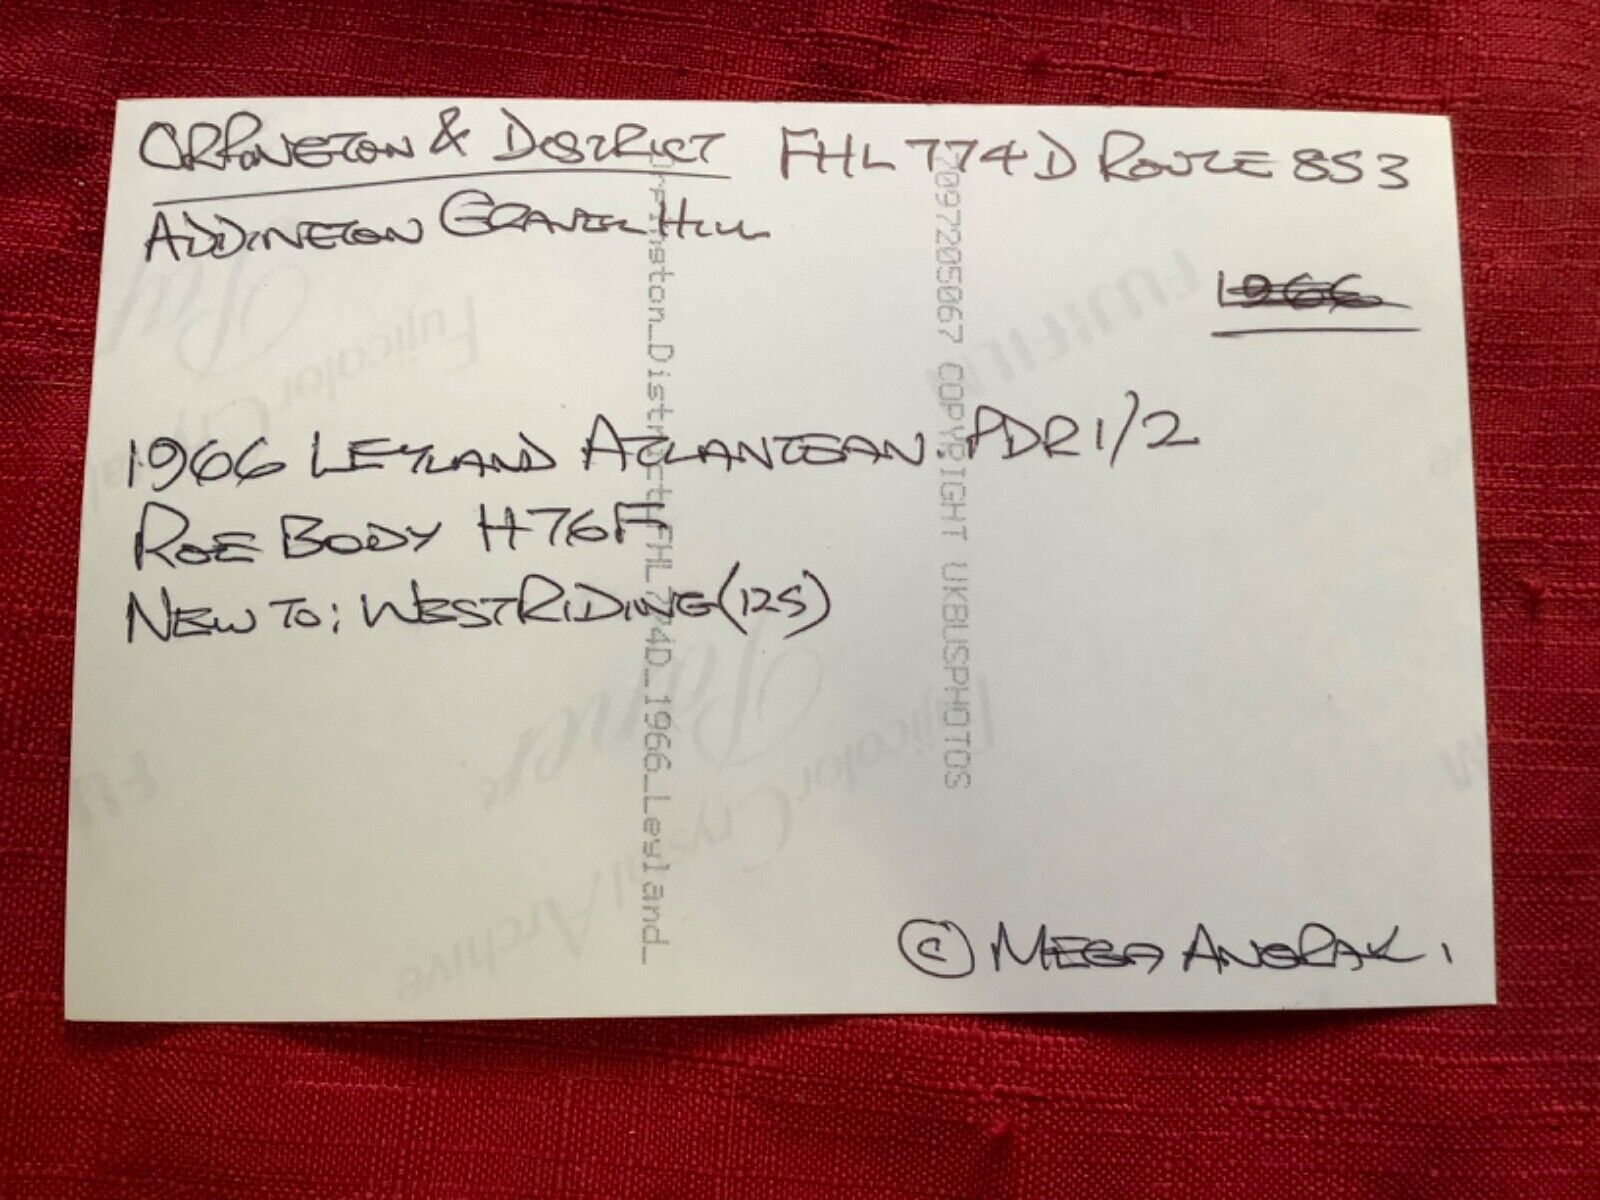 ORPINGTON & DISTRICT FHL 774D ROUTE 853
ADDINGTON GRAVEL HILL
1966
1966 LEYLAND ATLANTEAN. PDR1/2
ROE BODY H76F
NEW TO: WEST RIDING (125)
© MEGA ANORAK.
Orpinston_District_FHL 774D_1966_Leyland_
7097205067 COPYRIGHT UKBUSPHOTOS
FUJIFILM
Fujicolor Crystal Archive
Paper
Fujicolor